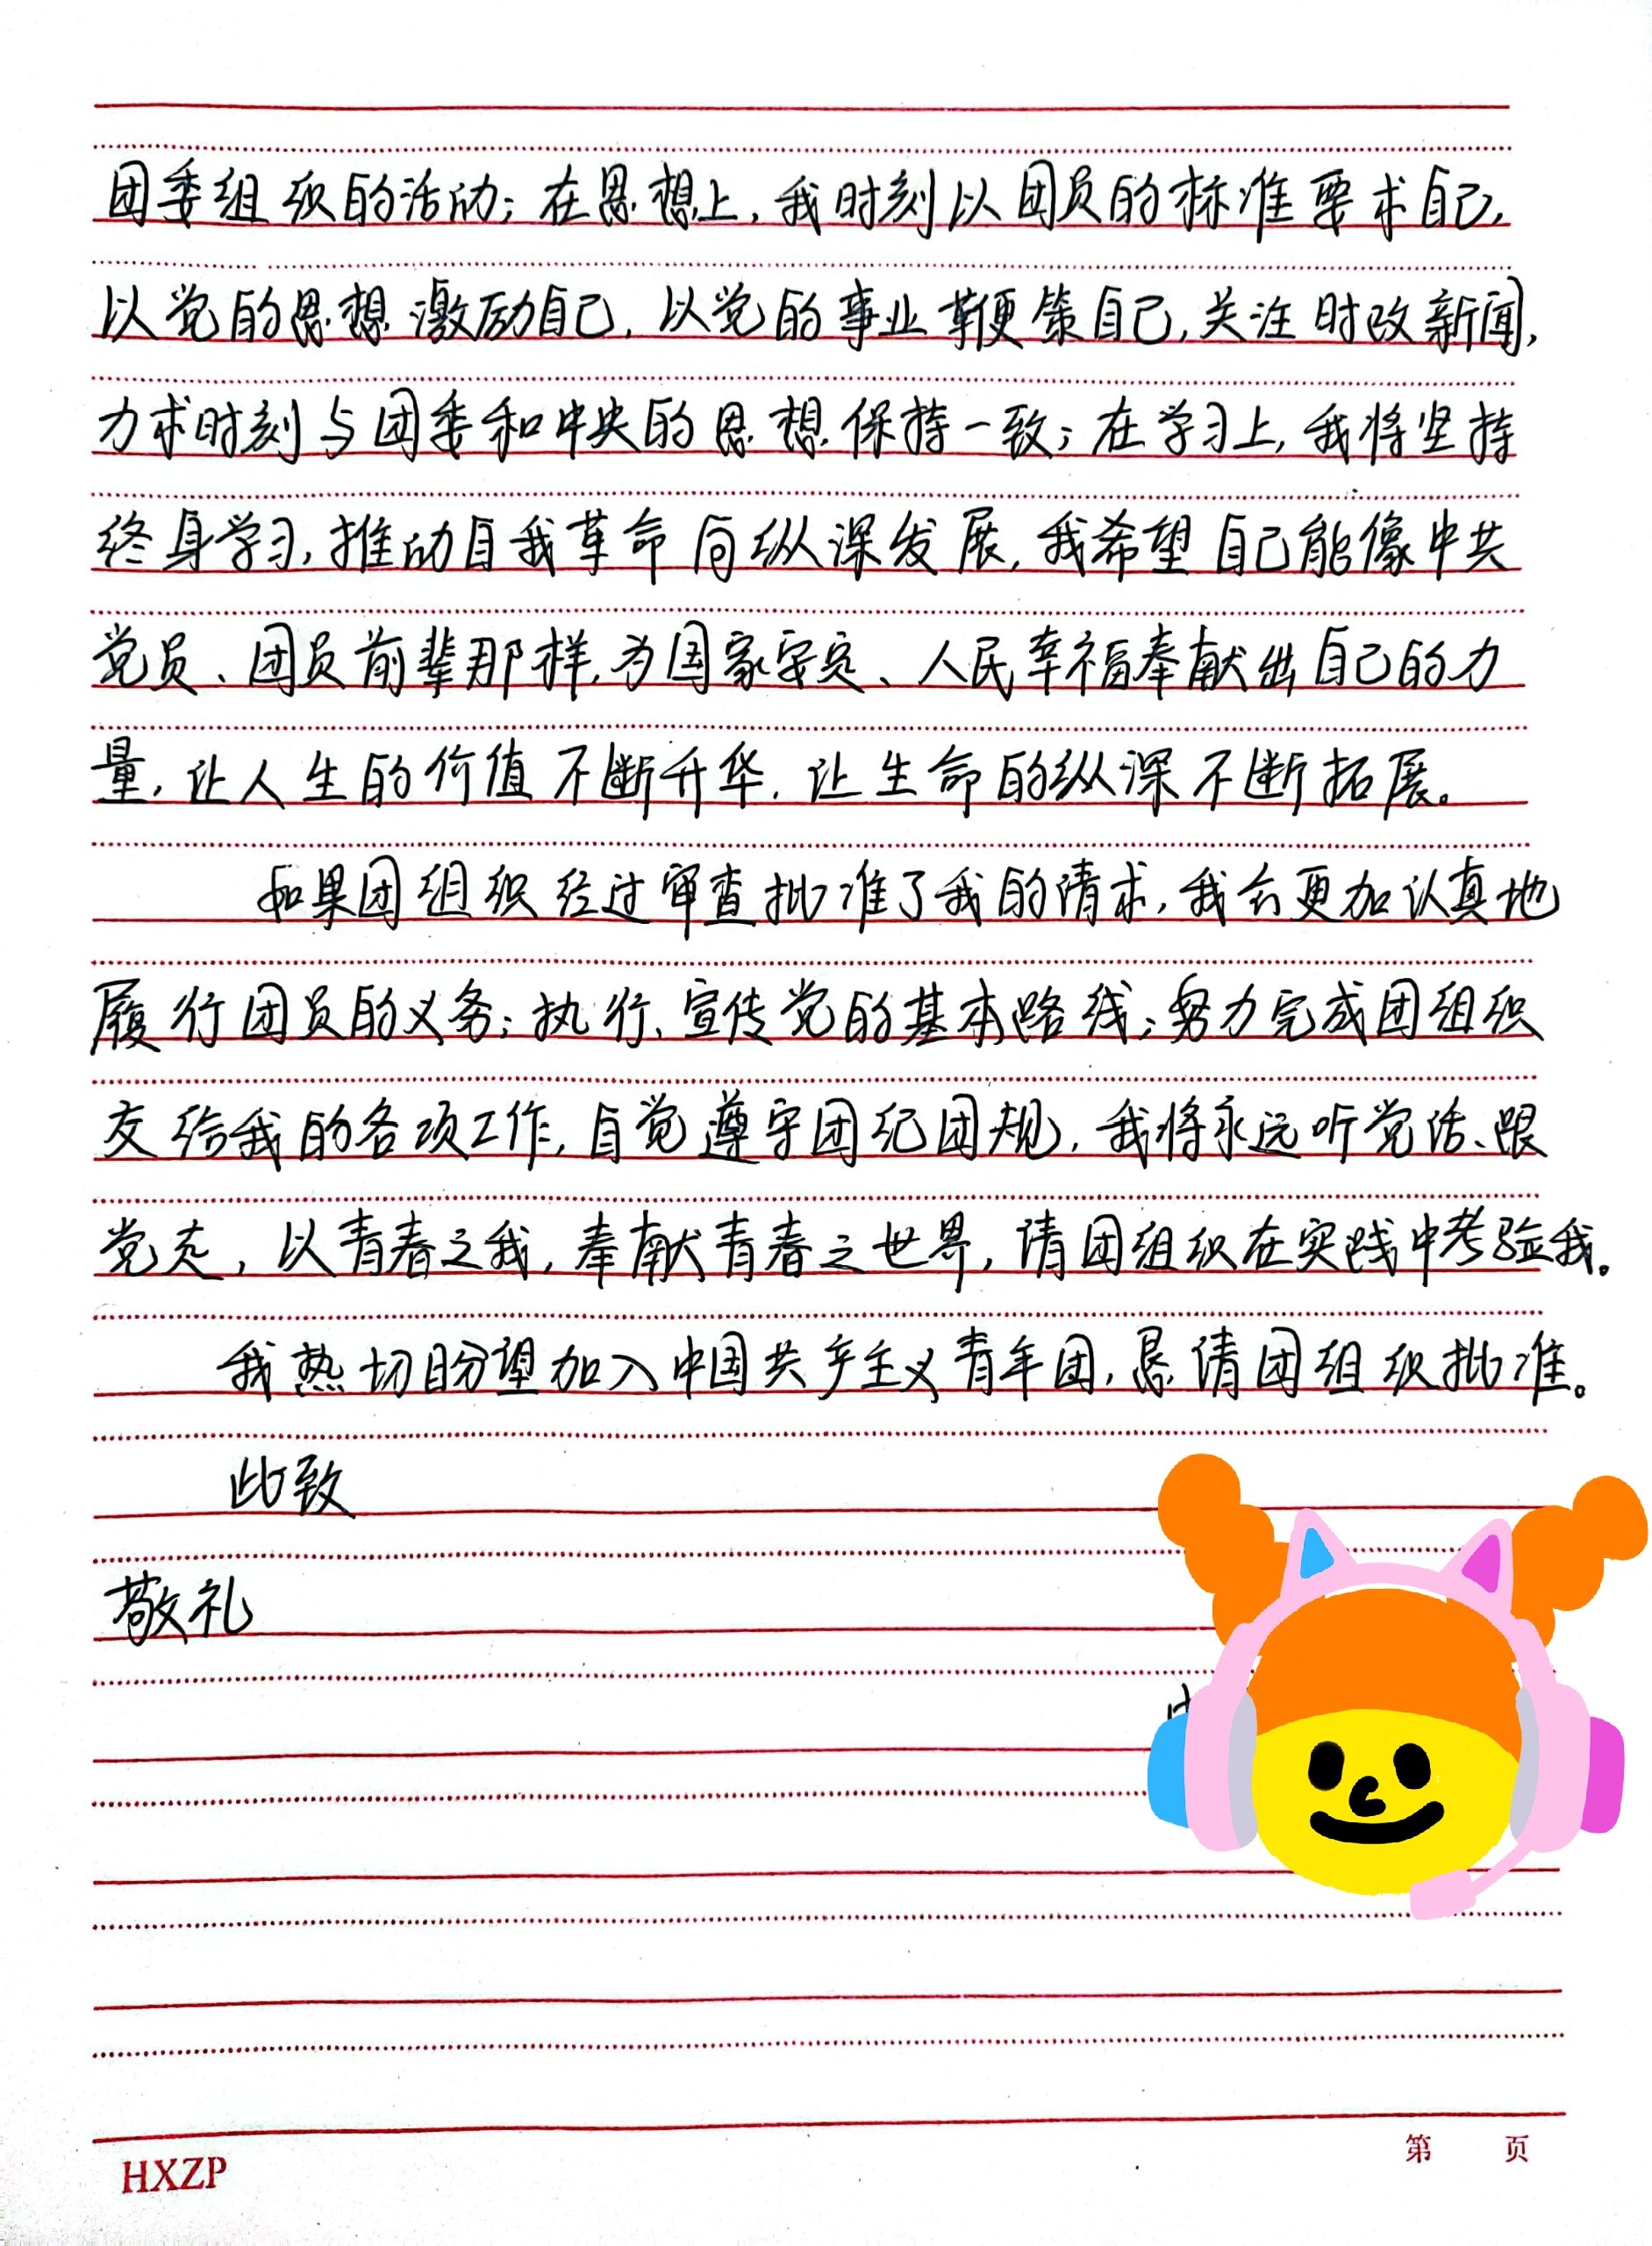 团委组织的活动；在思想上，我时刻以团员的标准要求自己，
以党的思想激励自己，以党的事业鞭策自己，关注时政新闻，
力求时刻与团委和中央的思想保持一致；在学习上，我将坚持
终身学习，推动自我革命向纵深发展，我希望自己能像中共
党员、团员前辈那样，为国家安定、人民幸福奉献出自己的力
量，让人生的价值不断升华，让生命的纵深不断拓展。
如果团组织经过审查批准了我的请求，我会更加认真地
履行团员的义务；执行、宣传党的基本路线；努力完成团组织
交给我的各项工作，自觉遵守团纪团规，我将永远听党话、跟
党走，以青春之我，奉献青春之世界，请团组织在实践中考验我。
我热切盼望加入中国共产主义青年团，恳请团组织批准。
此致
敬礼
HXZP
第 页